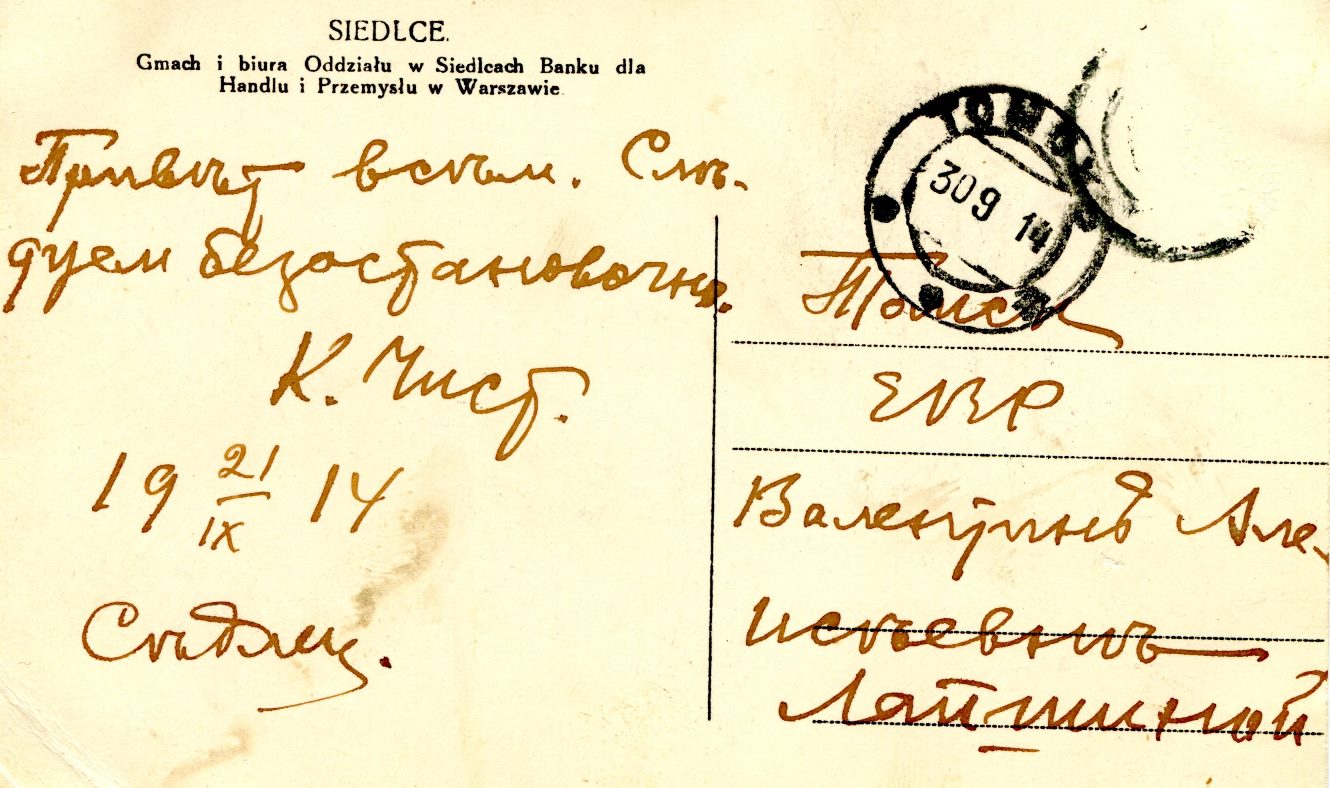 SIEDLCE.
Gmach i biura Oddziału w Siedlcach Banku dla
Handlu i Przemysłu w Warszawie
Привѣт всѣм. Слѣ-
дуем безостановочно.
К. Чист.
19 21/IX 14
Сѣдлец.
ТОМСК
30 9 14
Томск
ЕВР
Валентинѣ Але-
ксѣевнѣ
Лапшиной